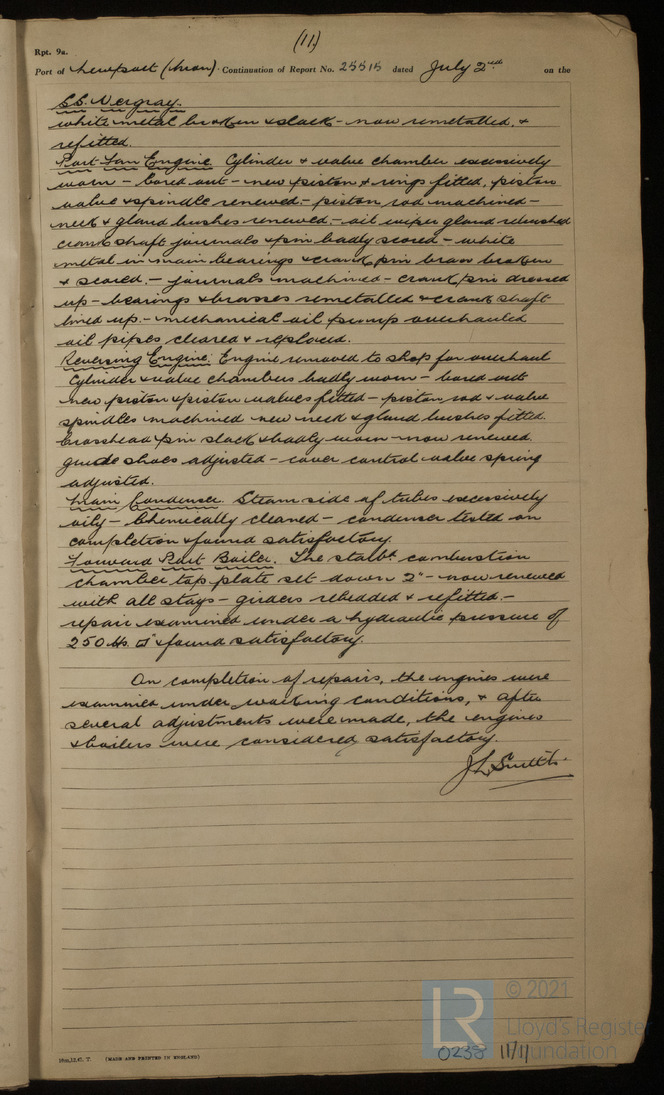 (11)
Rpt. 9a.
Port of Newport (Mon). Continuation of Report No. 25515 dated July 2nd on the
S.S. Vergray.
white metal broken & slack - now remetalled, &
refitted.
Port Fan Engine Cylinder & valve chamber excessively
worn - bored out - new piston & rings fitted, piston
valve & spindle renewed - piston rod machined -
neck & gland bushes renewed - oil wiper gland rebushed
crank shaft journals & pin badly scored - white
metal in main bearings & crank pin brass broken
& scored. - journals machined - crank pin dressed
up - bearings & brasses remetalled & crank shaft
lined up. - mechanical oil pump overhauled
oil pipes cleared & replaced.
Reversing Engine. Engine removed to shop for overhaul
Cylinder & valve chambers badly worn - bored out
new piston & piston valves fitted - piston rod & valve
spindles machined new neck & gland bushes fitted.
Crosshead pin slack & badly worn - now renewed.
guide shoes adjusted - cover control valve spring
adjusted.
Main Condenser. Steam side of tubes excessively
oily - Chemically cleaned - condenser tested on
completion & found satisfactory.
Forward Port Boiler. The starbt. combustion
chamber top plate set down 2" - now renewed
with all stays - girders rebedded & refitted. -
repair examined under a hydraulic pressure of
250 lbs. □" & found satisfactory.
On completion of repairs, the engines were
examined under working conditions, & after
several adjustments were made, the engines
& boilers were considered satisfactory.
J L Smith
(MADE AND PRINTED IN ENGLAND)
LR
© 2021
Lloyd's Register
Foundation
0238 11/11